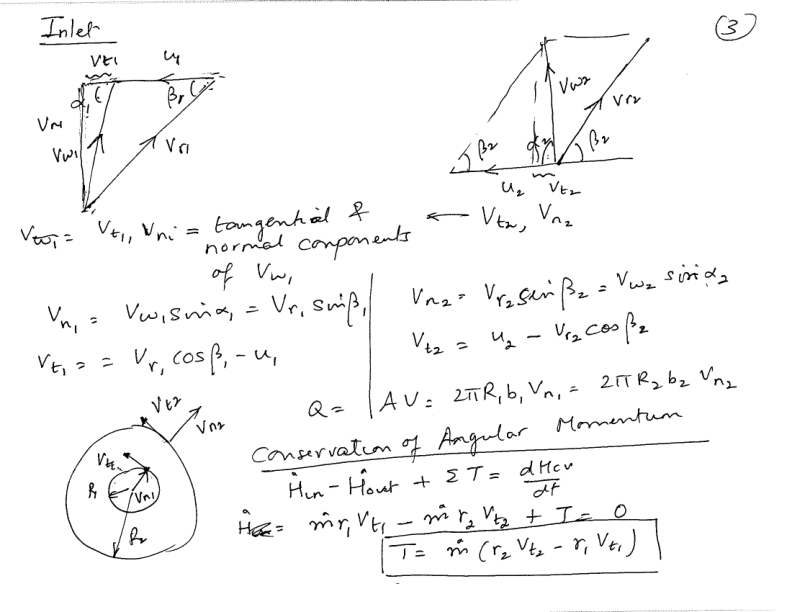 Inlet
(3)
Vt1 u1
α1 β1
Vn1
Vw1 Vr1
Vw2 Vr2
β2 α2 β2
u2 Vt2
Vt1, Vn1 = tangential & ← Vt2, Vn2
normal components
of Vw1
Vn1 = Vw1 sinα1 = Vr1 sinβ1
Vt1 = = Vr1 cosβ1 - u1
Vn2 = Vr2 sinβ2 = Vw2 sinα2
Vt2 = u2 - Vr2 cosβ2
Q = AV = 2πR1 b1 Vn1 = 2πR2 b2 Vn2
Vt2
Vn2
Vt1
R1 Vn1
R2
Conservation of Angular Momentum
Ḣin - Ḣout + ΣT = dHcv/dt
= ṁr1Vt1 - ṁr2Vt2 + T = 0
T = ṁ(r2Vt2 - r1Vt1)